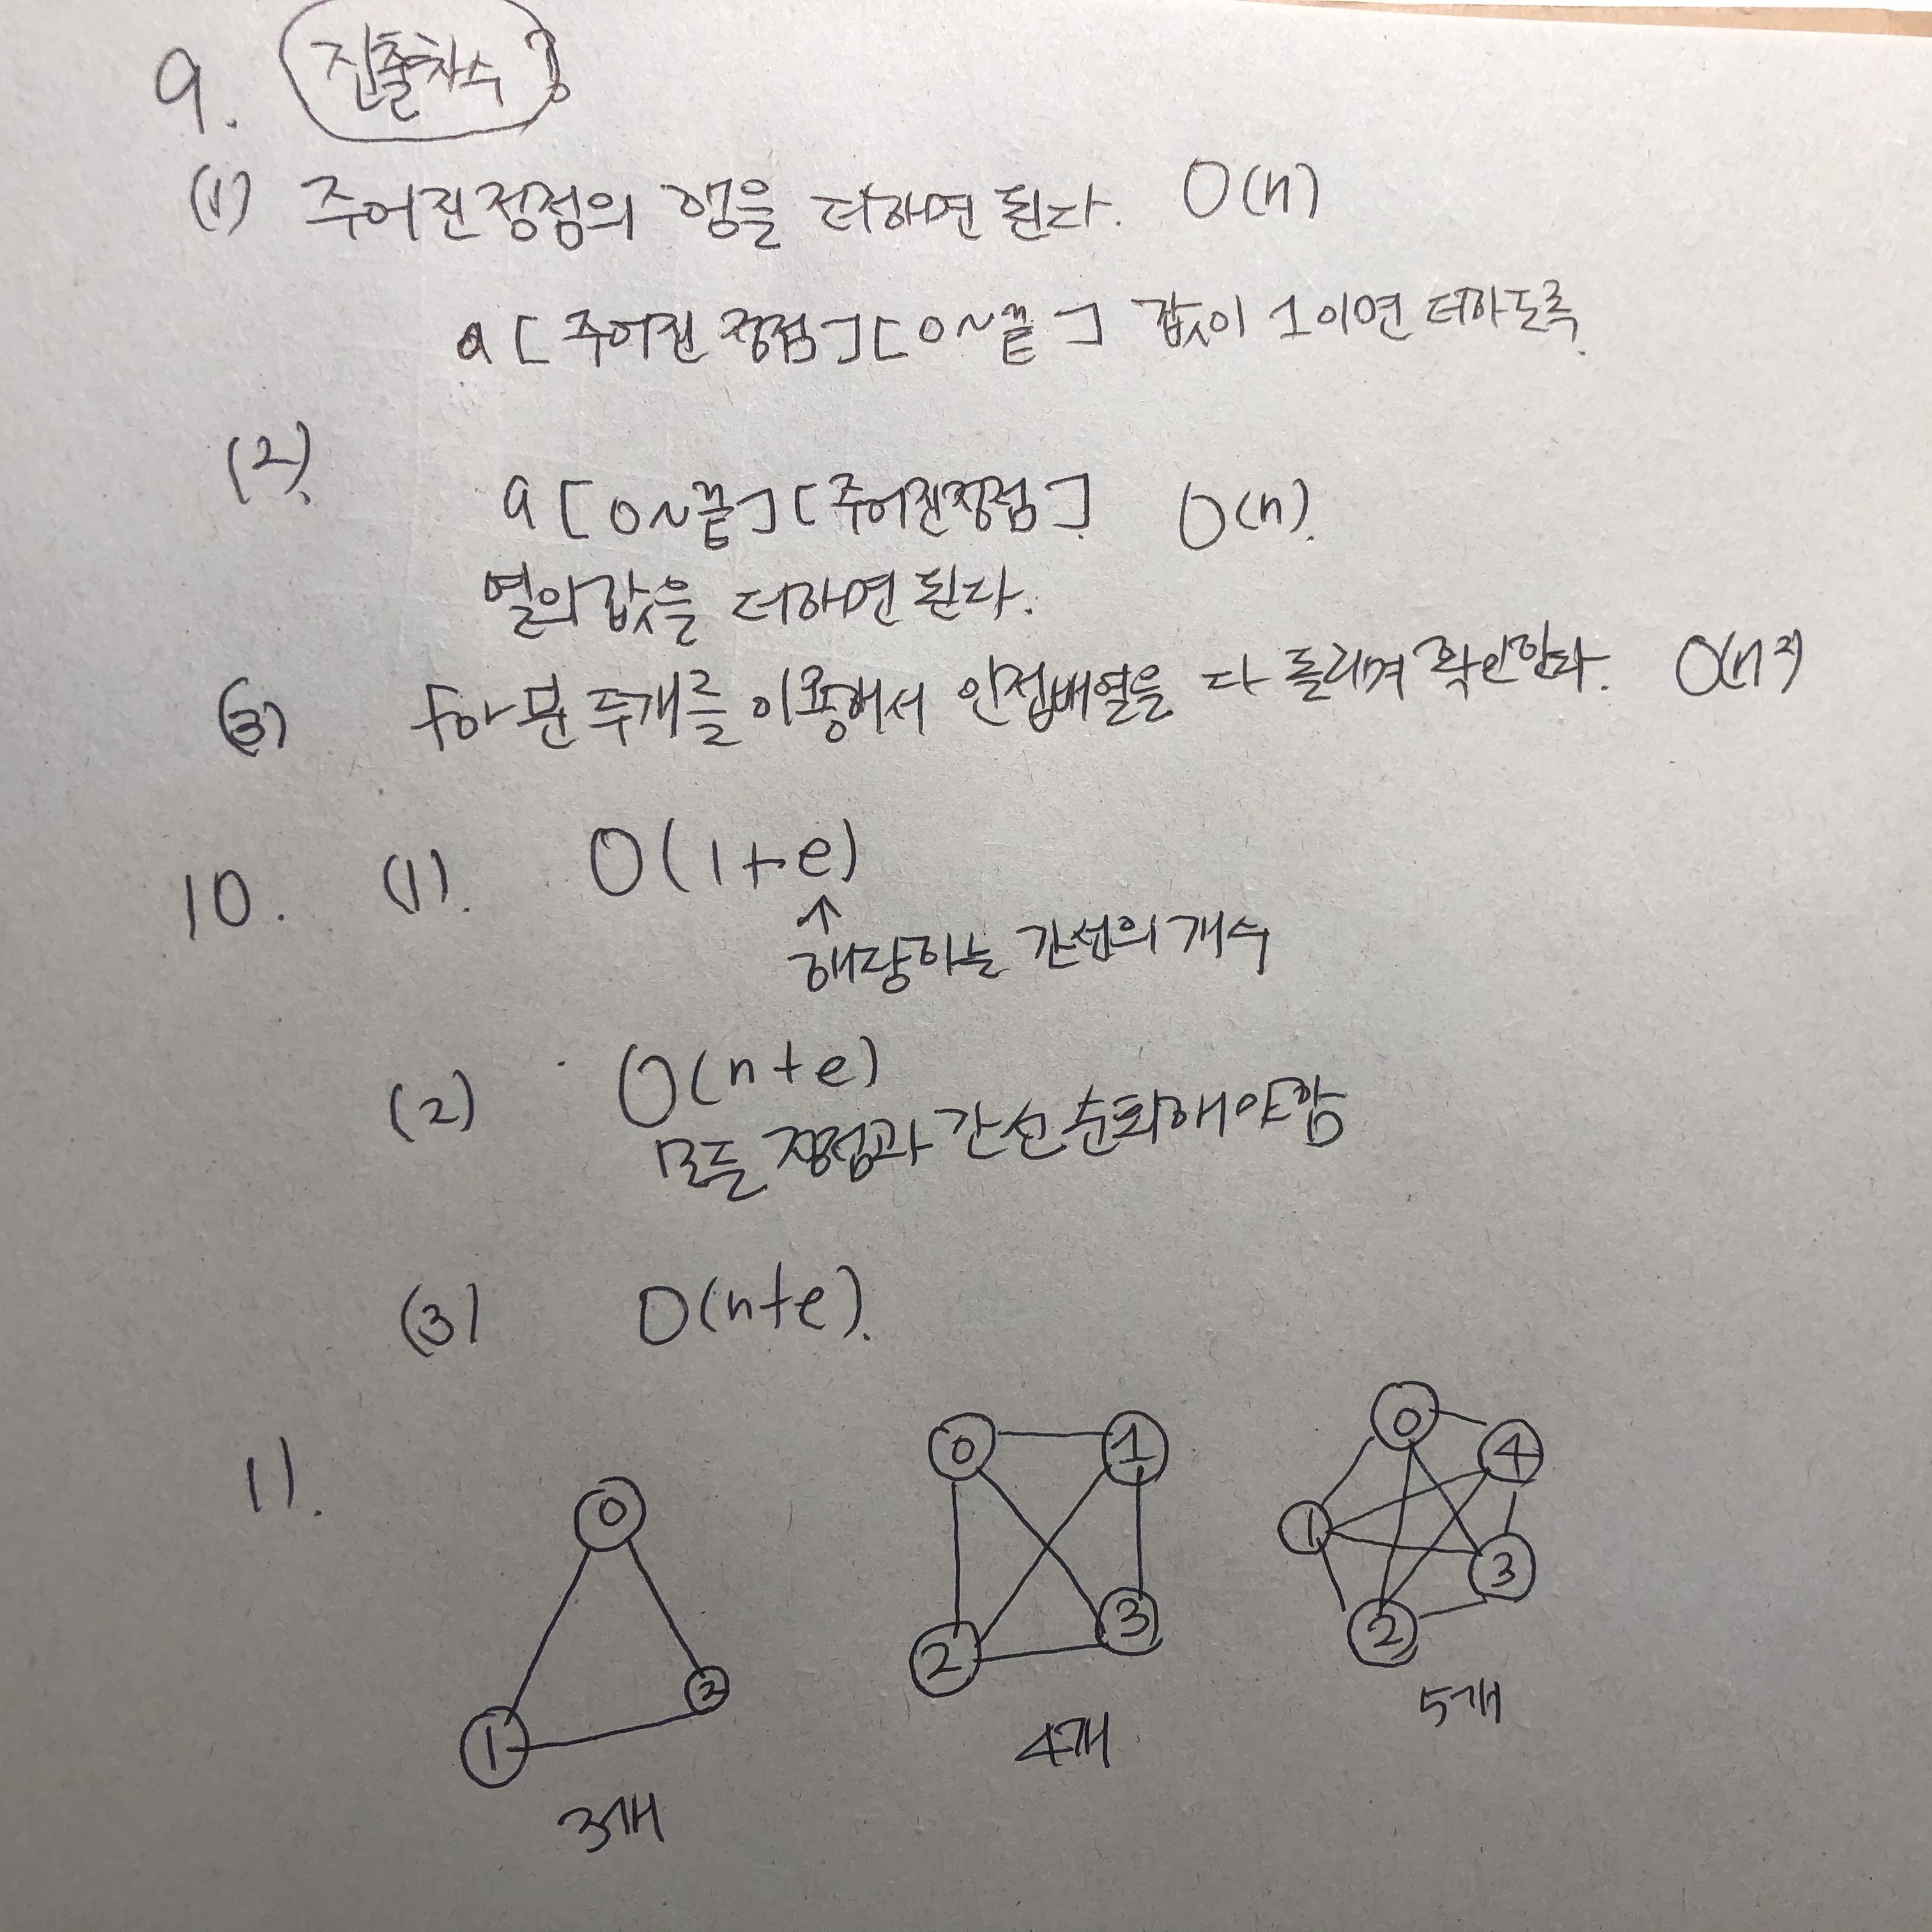 9. 진출차수?
(1) 주어진 정점의 행을 더하면 된다. O(n)
a[주어진 정점][0~끝] 값이 1이면 더하도록.
(2). a[0~끝][주어진정점]. O(n).
열의 값을 더하면 된다.
(3) for문 두개를 이용해서 인접배열을 다 돌리며 확인한다. O(n²)
10. (1). O(1+e)
↑
해당하는 간선의 개수
(2) O(n+e)
모든 정점과 간선 순회해야함
(3) O(n+e).
11.
0
1
2
3개
0
1
2
3
4개
0
4
1
3
2
5개